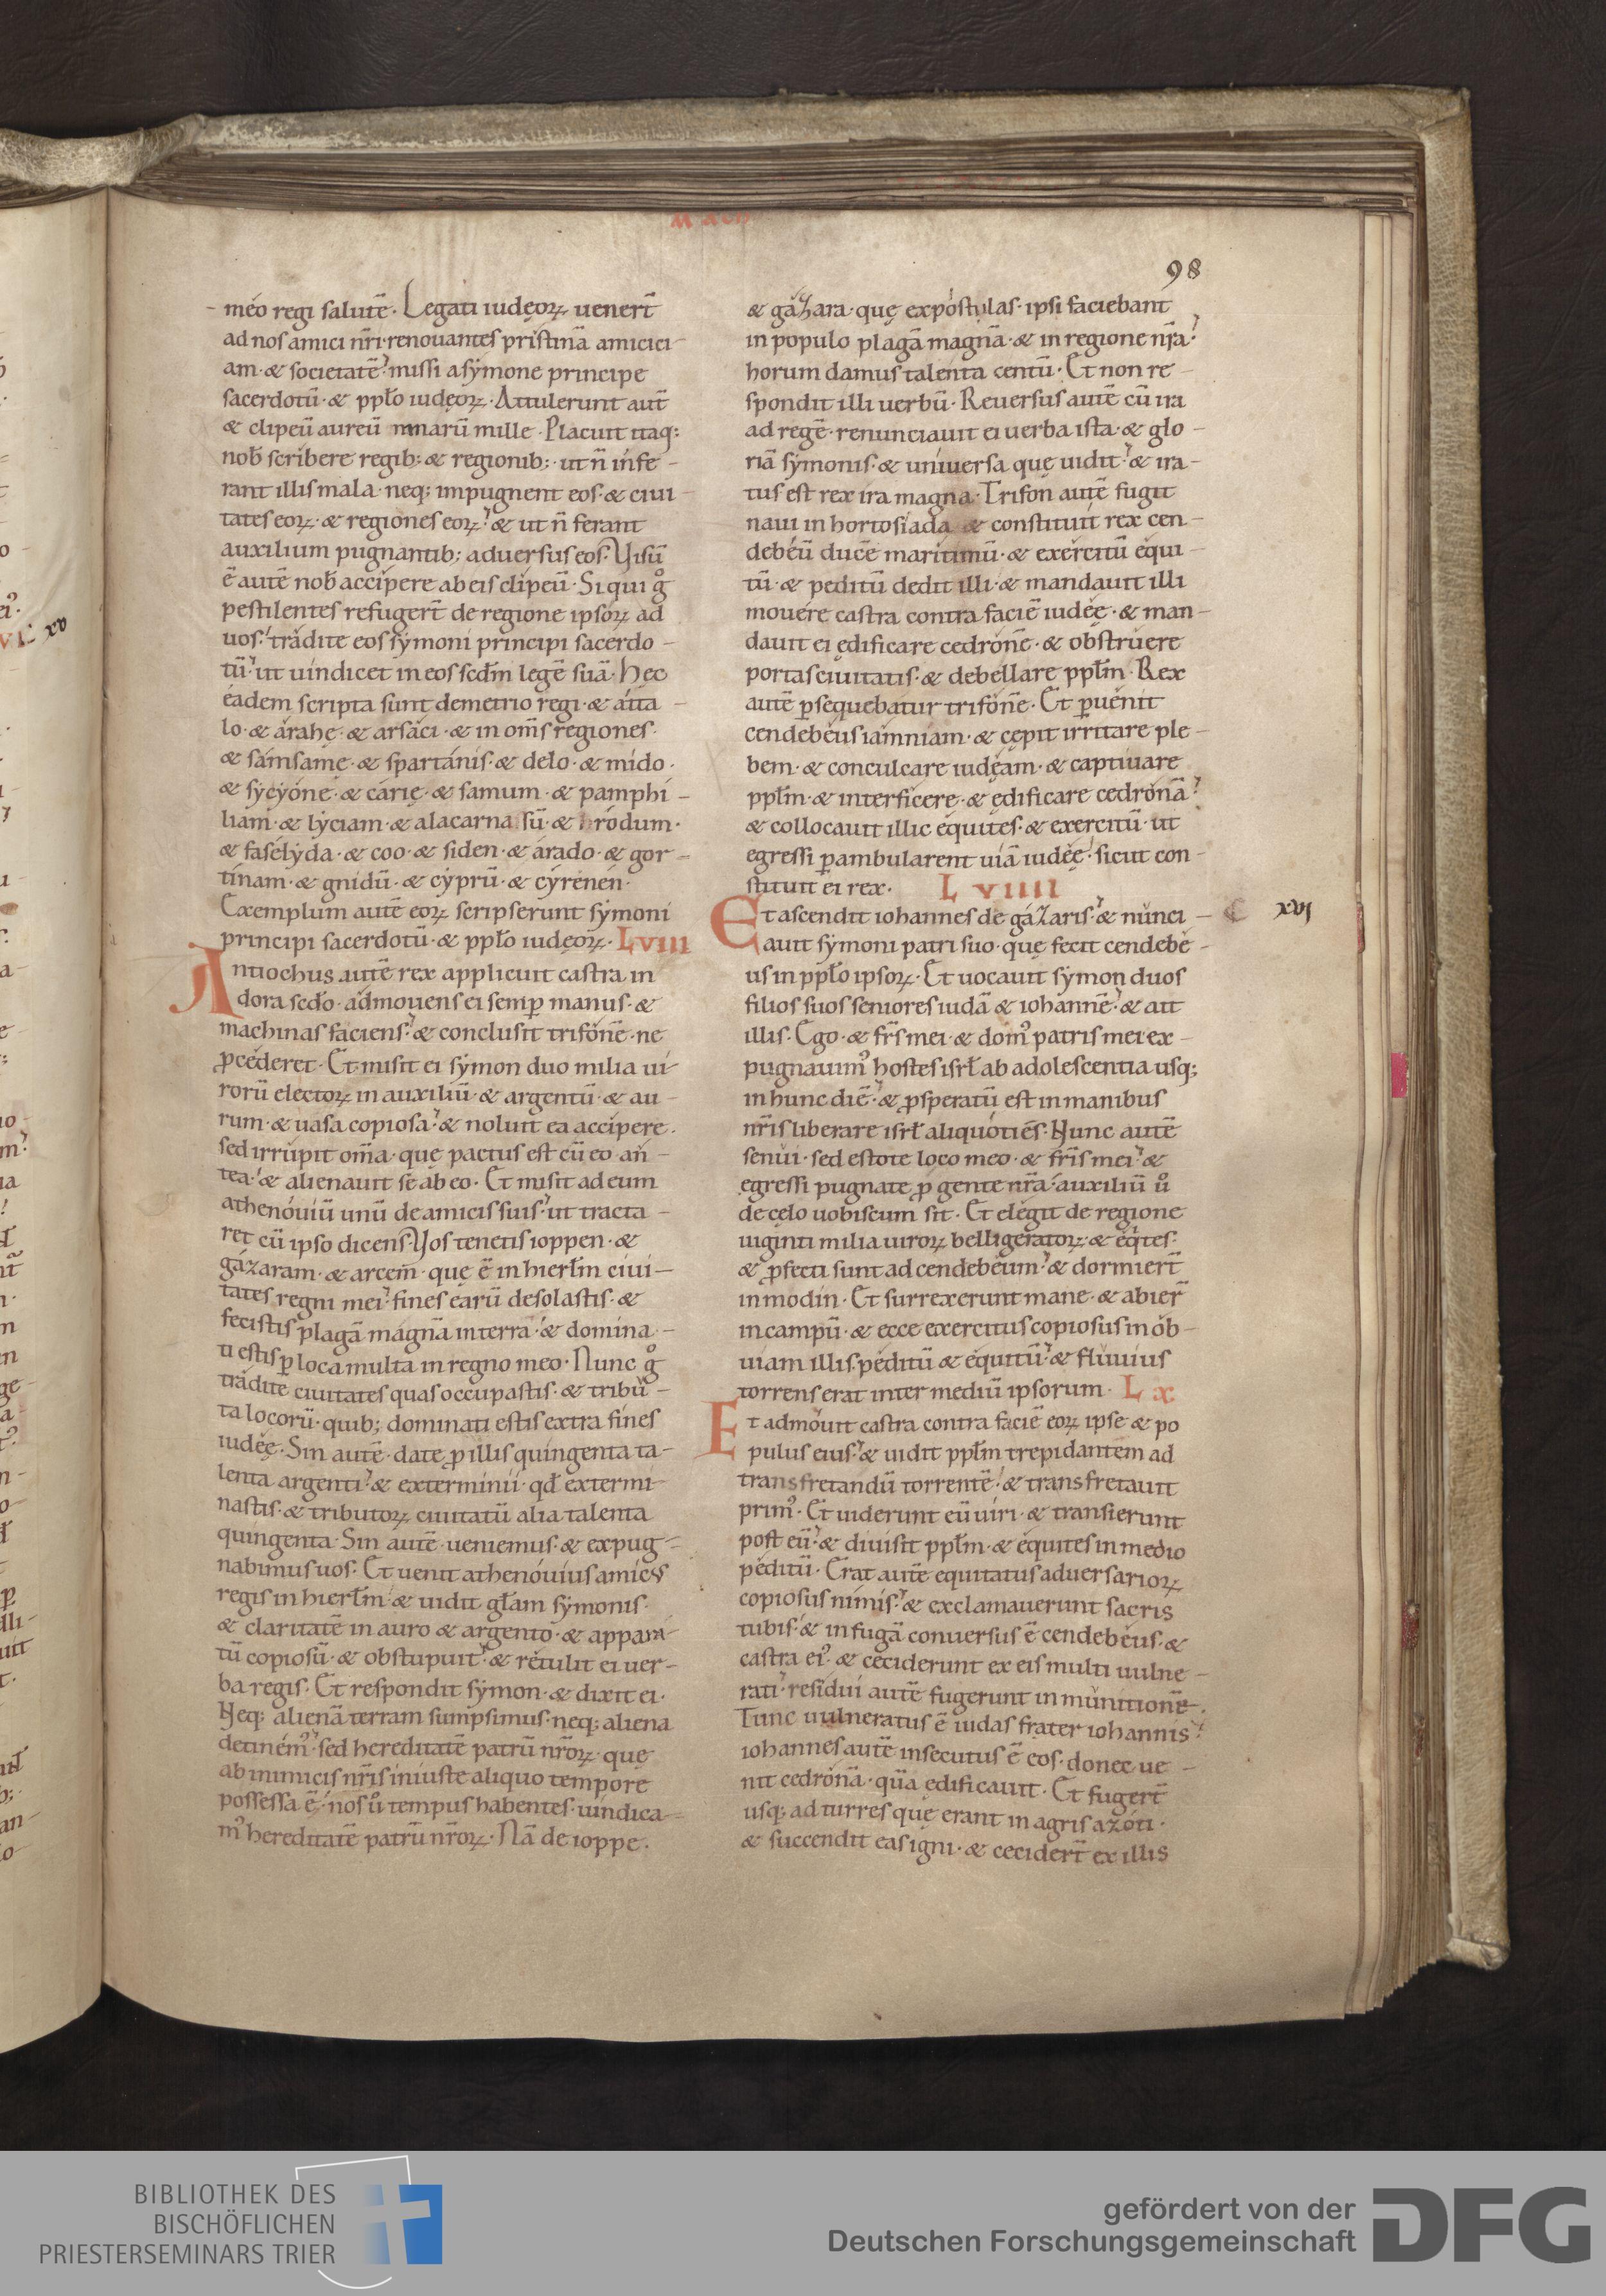 Mach
98
meo regi salutē. Legati iudęoꝝ uenerт̄
ad nos amici nr̄i renouantes pristinā amicici-
am · & societatē missi a symone principe
sacerdotū · & pplo iudęoꝝ · Attulerunt aut̄
& clipeū aureū mnarū mille · Placuit itaq;
nob̄ scribere regib; & regionib; · ut n̄ infe-
rant illis mala · neq; impugnent eos · & ciui-
tates eoꝝ · & regiones eoꝝ & ut n̄ ferant
auxilium pugnantib; aduersus eos · Uisū
ē autē nob̄ accipere ab eis clipeū · Si qui gͦ
pestilentes refugert̄ de regione ipsoꝝ ad
uos · tradite eos symoni principi sacerdo-
tū ut uindicet in eos scdm̄ legē suā · Hęc
eadem scripta sunt demetrio regi · & atta-
lo · & arahę · & arsaci · & in om̄s regiones ·
& samsamę · & spartanis · & delo · & mido ·
& sycyone · & carię · & samum · & pamphi-
liam · & lyciam · & alacarnassū · & hrodum ·
& faselyda · & coo · & siden · & arado · & gor-
tinam · & gnidū · & cyprū · & cyrenen ·
Exemplum autē eoꝝ scripserunt symoni
principi sacerdotū · & pplo iudęoꝝ · LVIII
Antiochus autē rex applicuit castra in
dora sedo · admouens ei semꝑ manus · &
machinas faciens & conclusit trifonē · ne
ꝓcederet · Et misit ei symon duo milia ui-
rorū electoꝝ in auxiliū · & argentū · & au-
rum · & uasa copiosa & noluit ea accipere ·
sed irrupit om̄a · quę pactus est cū eo an-
tea & alienauit se ab eo · Et misit ad eum
athenouiū unū de amicis suis ut tracta-
ret cū ipso dicens · Uos tenetis ioppen · &
gazaram · & arcem · quę ē in hierlm̄ ciui-
tates regni mei fines earū desolastis · &
fecistis plagā magnā in terra & domina-
ti estis ꝑ loca multa in regno meo · Nunc gͦ
tradite ciuitates quas occupastis · & tribu-
ta locorū · quib; dominati estis extra fines
iudęę · Sin autē · date ꝓ illis quingenta ta-
lenta argenti & exterminii · qđ extermi-
nastis · & tributoꝝ ciuitatū alia talenta
quingenta · Sin autē ueniemus · & expug-
nabimus uos · Et uenit athenouius amicus
regis in hierlm̄ & uidit gl̄am symonis ·
& claritatē in auro & argento · & appara-
tū copiosū · & obstupuit & retulit ei uer-
ba regis · Et respondit symon · & dixit ei ·
Neq; alienā terram sumpsimus · neq; aliena
detinem᾽ sed hereditatē patrū nr̄oꝝ · quę
ab inimicis nr̄is iniuste aliquo tempore
possessa ē nos uͦ tempus habentes · uindica-
m᾽ hereditatē patrū nr̄oꝝ · Nā de ioppe ·
& gazara · quę expostulas · ipsi faciebant
in populo plagā magnā · & in regione nr̄a
horum damus talenta centū · Et non re-
spondit illi uerbū · Reuersus autē cū ira
ad regē · renunciauit ei uerba ista · & glo-
riā symonis · & uniuersa quę uidit & ira-
tus est rex ira magna · Trifon autē fugit
naui in hortosiada · & constituit rex cen-
debeū ducē maritimū · & exercitū equi-
tū · & peditū dedit illi · & mandauit illi
mouere castra contra faciē iudęę · & man-
dauit ei ędificare cedronē · & obstruere
portas ciuitatis · & debellare pplm̄ · Rex
autē ꝑsequebatur trifonē · Et ꝑuenit
cendebeus iamniam · & cępit irritare ple-
bem · & conculcare iudęam · & captiuare
pplm̄ · & interficere · & ędificare cedronā
& collocauit illic equites · & exercitū · ut
egressi ꝑambularent uiā iudęę sicut con-
stituit ei rex · LVIIII
Et ascendit iohannes de gazaris & nunci-
auit symoni patri suo · quę fecit cendebe-
us in pplo ipsoꝝ · Et uocauit symon duos
filios suos seniores iudā & iohannē & ait
illis · Ego · & fr̄s mei · & dom᾽ patris mei ex-
pugnauim᾽ hostes isrl̄ ab adolescentia usq;
in hunc diē & ꝓsperatū est in manibus
nr̄is liberare isrl̄ aliquotiēs · Nunc autē
senui · sed estote loco meo · & fr̄is mei &
egressi pugnate ꝓ gente nr̄a auxiliū uͦ
de cęlo uobiscum sit · Et elegit de regione
uiginti milia uiroꝝ belligeratoꝝ · & eq̇tes
& ꝓfecti sunt ad cendebeum & dormiert̄
in modin · Et surrexerunt mane · & abiert̄
in campū · & ecce exercitus copiosus in ob-
uiam illis peditū & equitū & fluuius
torrens erat inter mediū ipsorum · LX
Et admouit castra contra faciē eoꝝ ipse & po
pulus eius & uidit pplm̄ trepidantem ad
transfretandū torrentē & transfretauit
prim᾽ · Et uiderunt eū uiri · & transierunt
post eū & diuisit pplm̄ · & equites in medio
peditū · Erat autē equitatus aduersarioꝝ
copiosus nimis & exclamauerunt sacris
tubis & in fugā conuersus ē cendebeus · &
castra ei᾽ · & ceciderunt ex eis multi uulne-
rati residui autē fugerunt in munitionē ·
Tunc uulneratus ē iudas frater iohannis
iohannes autē insecutus ē eos · donec ue-
nit cedronā · quā edificauit · Et fugert̄
usq; ad turres quę erant in agris azoti ·
& succendit eas igni · & cecidert̄ ex illis
xv
xvj
BIBLIOTHEK DES
BISCHÖFLICHEN
PRIESTERSEMINARS TRIER
gefördert von der
Deutschen Forschungsgemeinschaft
DFG